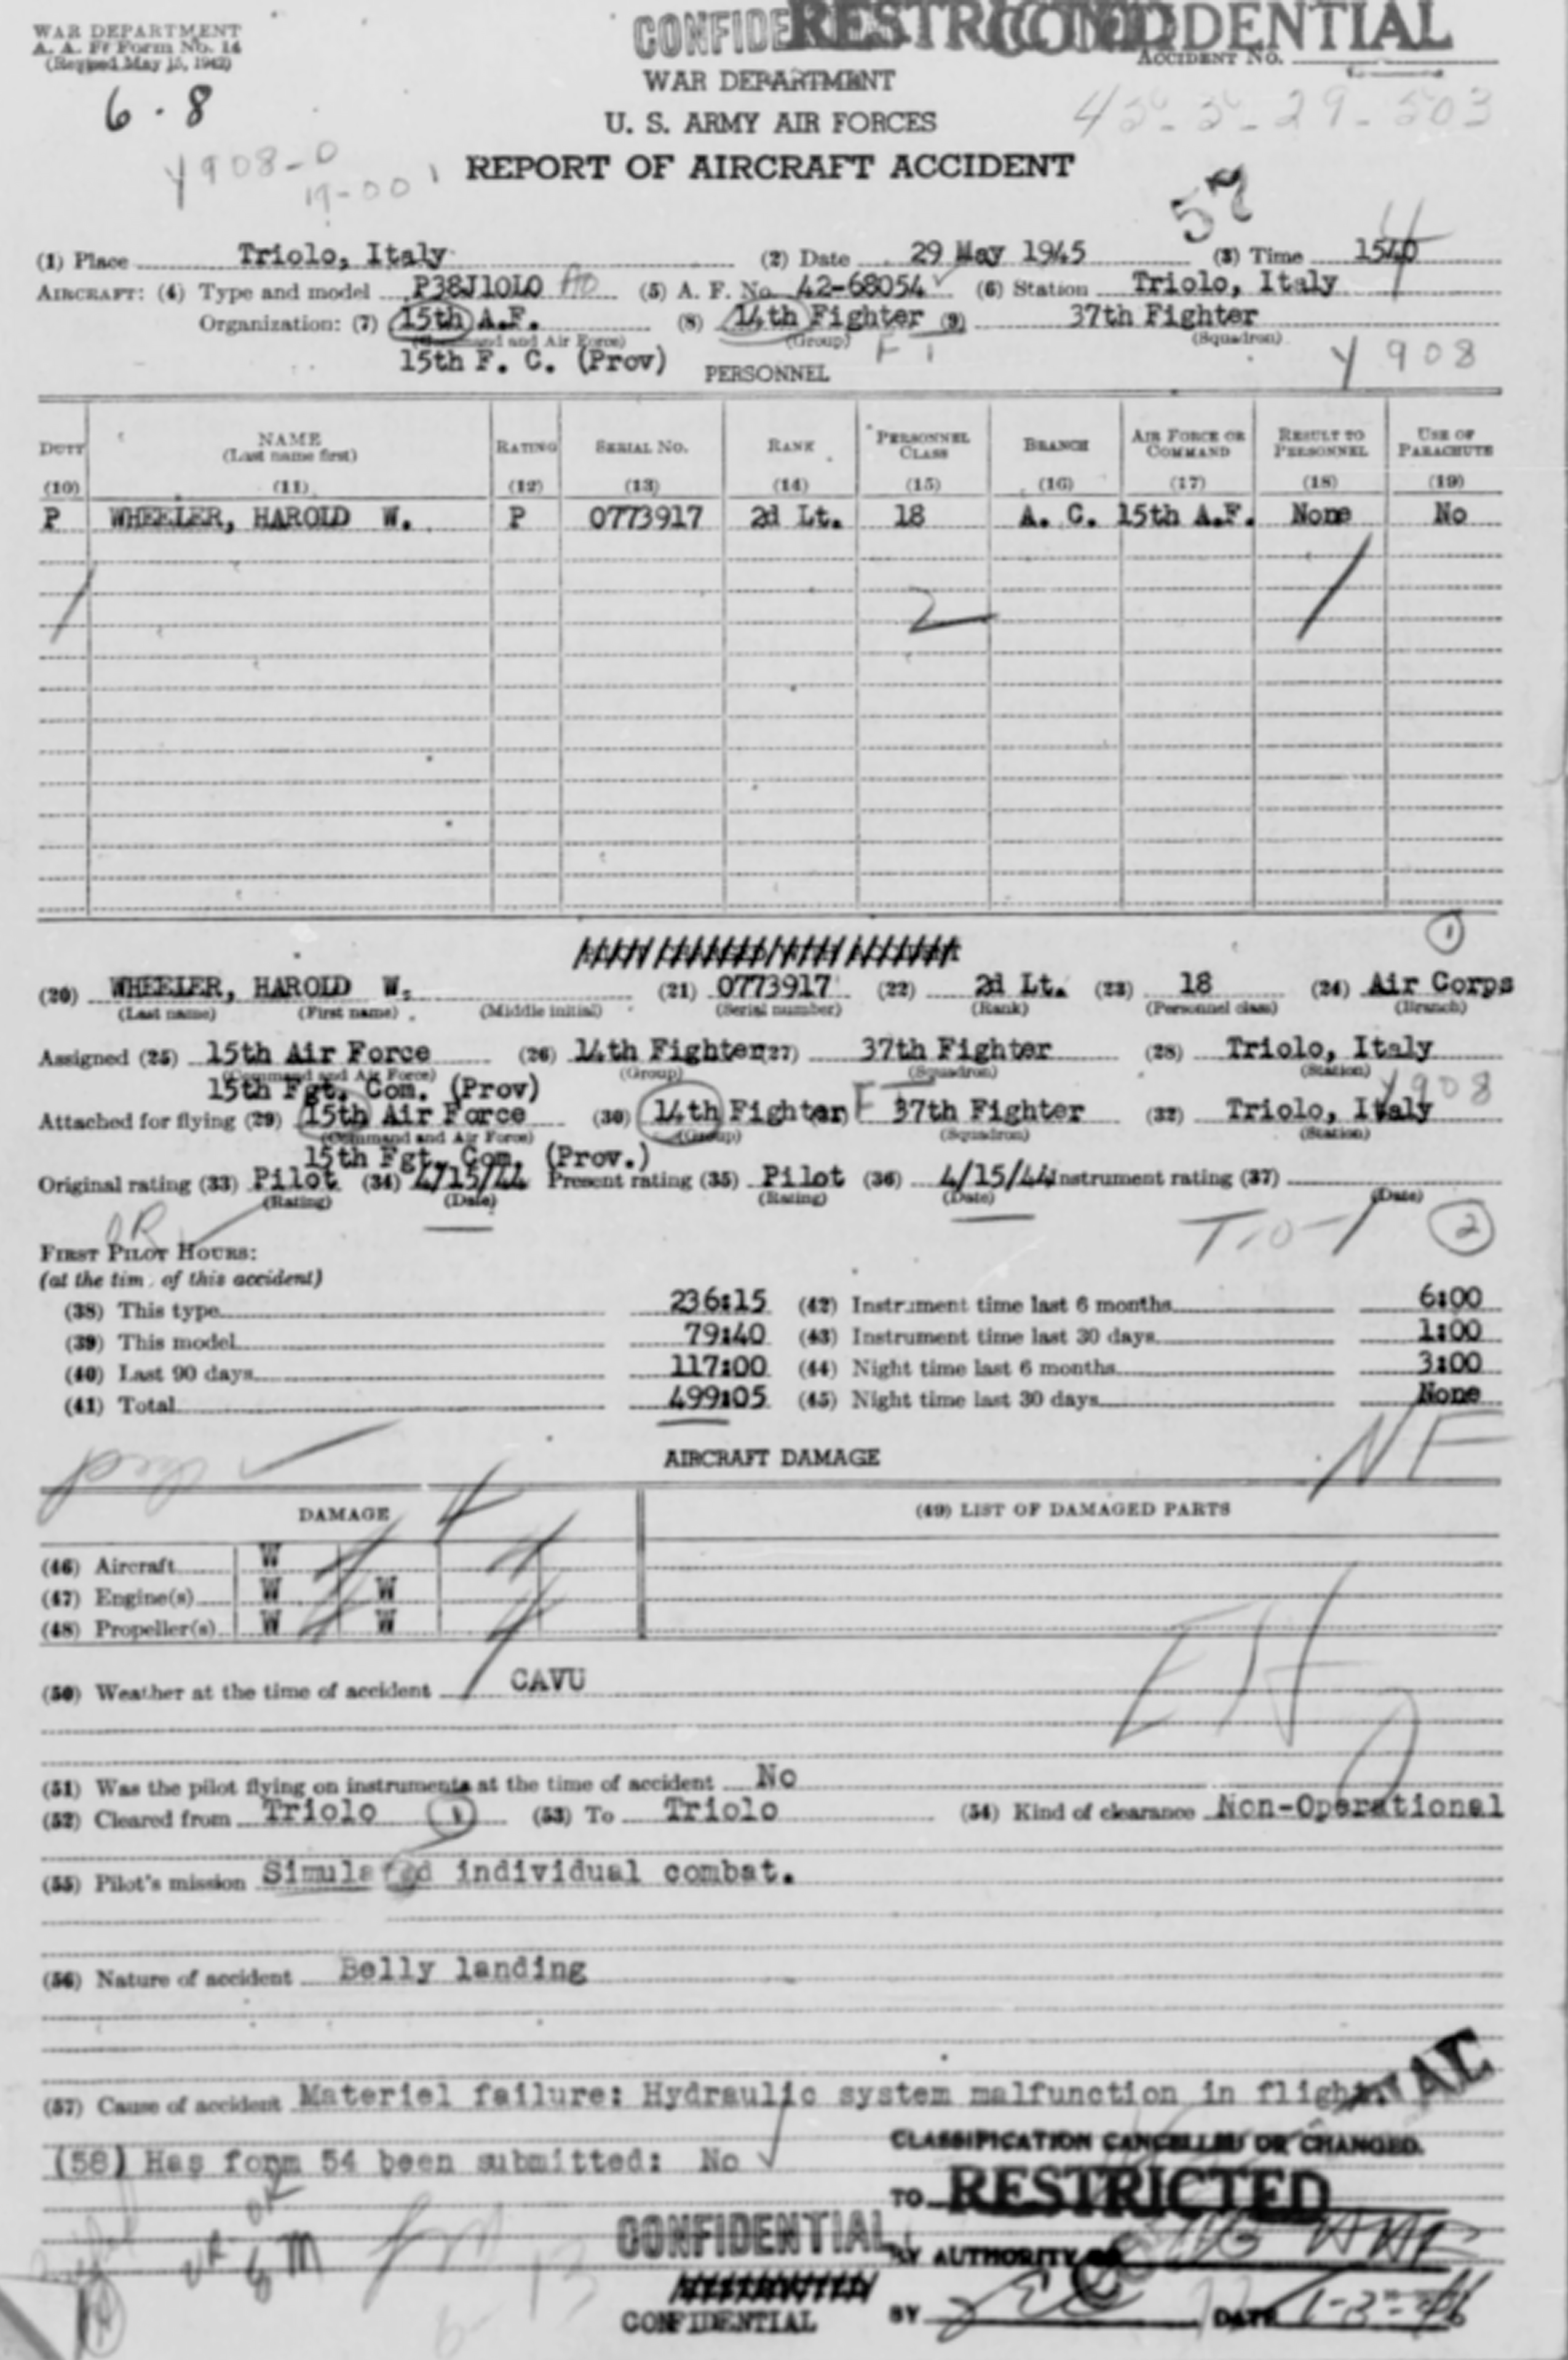 WAR DEPARTMENT
A. A. F. Form No. 14
(Revised May 15, 1942)
CONFIDENTIAL
RESTRICTED
CONFIDENTIAL
ACCIDENT NO.
WAR DEPARTMENT
6.8
U. S. ARMY AIR FORCES
45-5-29-503
Y908-0
19-00
REPORT OF AIRCRAFT ACCIDENT
57
4
(1) Place Triolo, Italy (2) Date 29 May 1945 (3) Time 1540
AIRCRAFT: (4) Type and model P38J10LO (5) A. F. No. 42-68054 (6) Station Triolo, Italy
Organization: (7) 15th A.F. (8) 14th Fighter (9) 37th Fighter
(Command and Air Force) (Group) (Squadron)
15th F. C. (Prov)
Y 908
PERSONNEL
DUTY NAME (Last name first) RATING SERIAL NO. RANK PERSONNEL CLASS BRANCH AIR FORCE OR COMMAND RESULT TO PERSONNEL USE OF PARACHUTE
(10) (11) (12) (13) (14) (15) (16) (17) (18) (19)
P WHEELER, HAROLD W. P 0773917 2d Lt. 18 A. C. 15th A.F. None No
2
1
(20) WHEELER, HAROLD W. (21) 0773917 (22) 2d Lt. (23) 18 (24) Air Corps
(Last name) (First name) (Middle initial) (Serial number) (Rank) (Personnel class) (Branch)
Assigned (25) 15th Air Force (26) 14th Fighter (27) 37th Fighter (28) Triolo, Italy
(Command and Air Force) (Group) (Squadron) (Station)
15th Fgt. Com. (Prov)
Y908
Attached for flying (29) 15th Air Force (30) 14th Fighter (31) 37th Fighter (32) Triolo, Italy
(Command and Air Force) (Group) (Squadron) (Station)
15th Fgt. Com. (Prov.)
Original rating (33) Pilot (34) 4/15/44 Present rating (35) Pilot (36) 4/15/44 Instrument rating (37)
(Rating) (Date) (Rating) (Date) (Date)
2
FIRST PILOT HOURS:
(at the time of this accident)
(38) This type 236:15 (42) Instrument time last 6 months 6:00
(39) This model 79:40 (43) Instrument time last 30 days 1:00
(40) Last 90 days 117:00 (44) Night time last 6 months 3:00
(41) Total 499:05 (45) Night time last 30 days None
NF
AIRCRAFT DAMAGE
DAMAGE 4 (49) LIST OF DAMAGED PARTS
(46) Aircraft W
(47) Engine(s) W W
(48) Propeller(s) W W
(50) Weather at the time of accident CAVU
(51) Was the pilot flying on instruments at the time of accident No
(52) Cleared from Triolo (53) To Triolo (54) Kind of clearance Non-Operational
(55) Pilot's mission Simulated individual combat.
(56) Nature of accident Belly landing
(57) Cause of accident Materiel failure: Hydraulic system malfunction in flight.
CLASSIFICATION CANCELLED OR CHANGED.
(58) Has form 54 been submitted: No
TO RESTRICTED
CONFIDENTIAL
BY AUTHORITY OF
CONFIDENTIAL
BY DATE 1-3-46